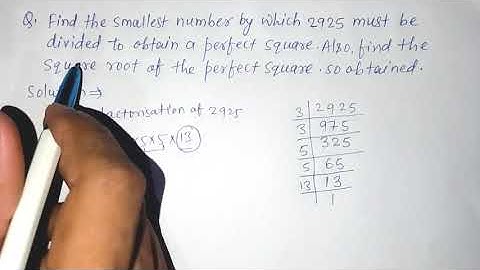 Q. Find the smallest number by which 2925 must be
divided to obtain a perfect square. Also, find the
square root of the perfect square. so obtained.
factorisation of 2925
×5×5×13
3 | 2925
3 | 975
5 | 325
5 | 65
13 | 13
1